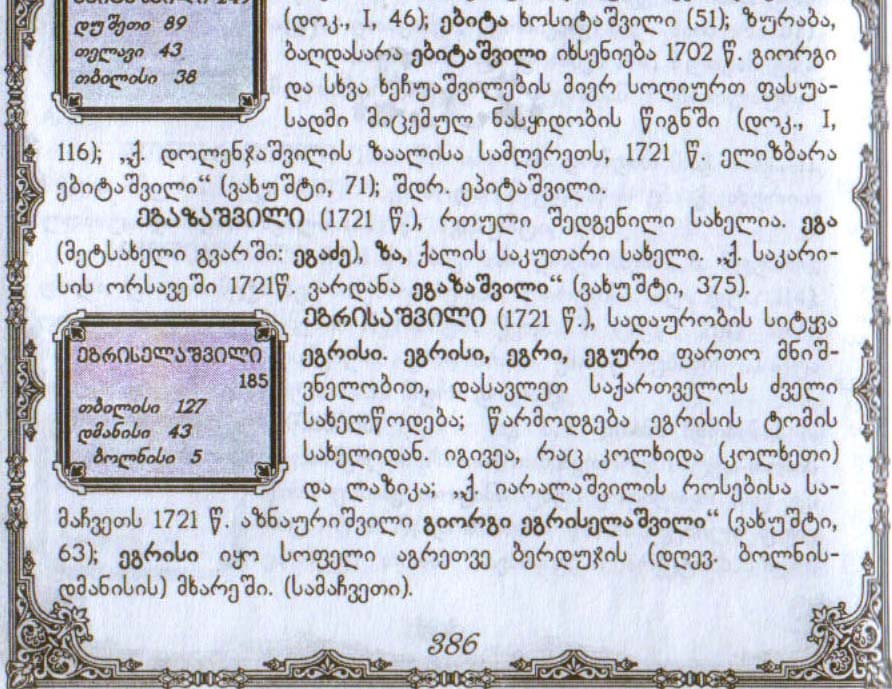 დუშეთი 89
თელავი 43
თბილისი 38
(დოკ., I, 46); ებიტა ხოსიტაშვილი (51); ზურაბა,
ბაღდასარა ებიტაშვილი იხსენიება 1702 წ. გიორგი
და სხვა ხეჩუაშვილების მიერ სოღიურთ ფასუა-
სადმი მიცემულ ნასყიდობის წიგნში (დოკ., I,
116); „ქ. დოლენჯაშვილის ზაალისა სამღერეთს, 1721 წ. ელიზბარა
ებიტაშვილი“ (ვახუშტი, 71); შდრ. ეპიტაშვილი.
ეგაზაშვილი (1721 წ.), რთული შედგენილი სახელია. ეგა
(მეტსახელი გვარში: ეგაძე), ზა, ქალის საკუთარი სახელი. „ქ. საკარი-
სის ორსავეში 1721წ. ვარდანა ეგაზაშვილი“ (ვახუშტი, 375).
ეგრისაშვილი (1721 წ.), სადაურობის სიტყვა
ეგრისი. ეგრისი, ეგრი, ეგური ფართო მნიშ-
ვნელობით, დასავლეთ საქართველოს ძველი
სახელწოდება; წარმოდგება ეგრისის ტომის
სახელიდან. იგივეა, რაც კოლხიდა (კოლხეთი)
და ლაზიკა; „ქ. იარალაშვილის როსებისა სა-
მაჩვეთს 1721 წ. აზნაურიშვილი გიორგი ეგრისელაშვილი“ (ვახუშტი,
63); ეგრისი იყო სოფელი აგრეთვე ბერდუჯის (დღევ. ბოლნის-
დმანისის) მხარეში. (სამაჩვეთი).
ეგრისელაშვილი
185
თბილისი 127
დმანისი 43
ბოლნისი 5
386